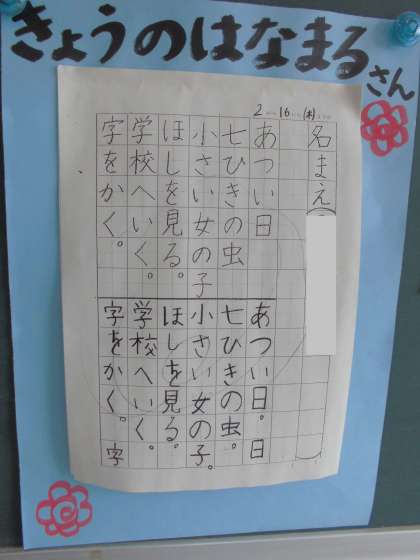 きょうのはなまるさん
2 16 (木)
名まえ
あつい日
七ひきの虫
小さい女の子
ほしを見る。
学校へいく。
字をかく。
あつい日。日
七ひきの虫。
小さい女の子。
ほしを見る。
学校へいく。
字をかく。字